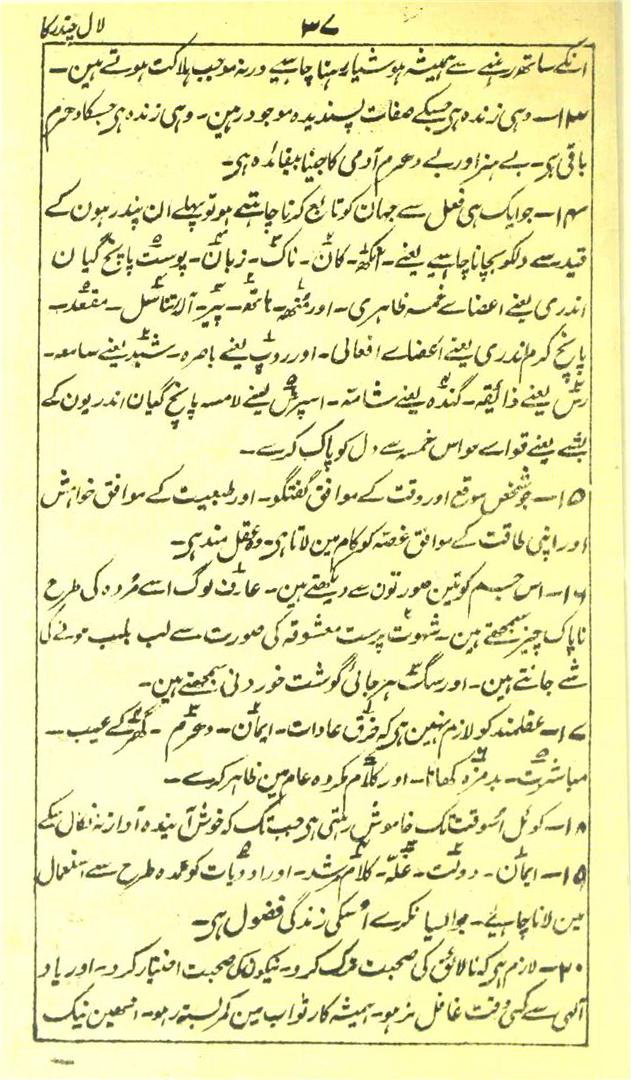 لال چندرکا ۳۷
انکے ساتھ رہنے سے ہمیشہ ہوشیار رہنا چاہیے ورنہ موجب ہلاکت ہوتے ہین۔
۱۳۔ وہی زندہ ہی جسکے صفات پسندیدہ موجود رہین۔ وہی زندہ ہی جسکا دھرم
باقی ہی۔ بے ہنر اور بے دھرم آدمی کا جینا بیفائدہ ہی۔
۱۴۔ جو ایک ہی فعل سے جہان کو تابع کرنا چاہتے ہو تو پہلے ان پندرہون کے
قید سے دلکو بچانا چاہیے یعنے۔ آنکھ۔ کان۔ ناک۔ زبان۔ پوست پانچ گیان
اندری یعنے اعضاے خمسہ ظاہری۔ اور مُنھ۔ ہاتھ۔ پیر۔ آلۂ تناسل۔ مقعد۔
پانچ کرم اندری یعنے اعضاے افعالی۔ اور روپ یعنے باصرہ۔ شبد یعنے سامعہ۔
رس یعنے ذائقہ۔ گندہ یعنے شامّہ۔ اسپرش یعنے لامسہ پانچ گیان اندریون کے
بشے یعنے قواے حواس خمسہ سے دل کو پاک کرے۔
۱۵۔ جو شخص موقع اور وقت کے موافق گفتگو۔ اور طبیعت کے موافق خواہش
اور اپنی طاقت کے موافق غصّہ کو کام مین لاتا ہی۔ وہ عقل مند ہی۔
۱۶۔ اس جسم کو تین صورتون سے دیکھتے ہین۔ عارف لوگ اسے مُردہ کی طرح
ناپاک چیز سمجھتے ہین۔ شہوت پرست معشوقہ کی صورت سے لب بلب ہونے کی
شے جانتے ہین۔ اور سگ ہرجائی گوشت خوردنی سمجھتے ہین۔
۱۷۔ عقلمند کو لازم نہین ہی کہ خرق عادات۔ ایمان۔ دھرم۔ گھر کے عیب۔
مباشرت۔ بدمزہ کھانا۔ اور کلام مکروہ عام مین ظاہر کرے۔
۱۸۔ کوئل اسوقت تک خاموش رہتی ہی جب تک کہ خوش آیندہ آواز نہ نکال سکے
۱۵۔ ایمان۔ دولت۔ غلّہ۔ کلام مرشد۔ اور ادویات کو عمدہ طرح سے استعمال
مین لانا چاہیے۔ جو ایسا نکرے اُسکی زندگی فضول ہی۔
۲۰۔ لازم ہی کہ نالائق کی صحبت ترک کرو۔ نیکون کی صحبت اختیار کرو۔ اور یاد
آلہی سے کسی وقت غافل نہو۔ ہمیشہ کار ثواب مین کمربستہ رہو۔ انھین نیک